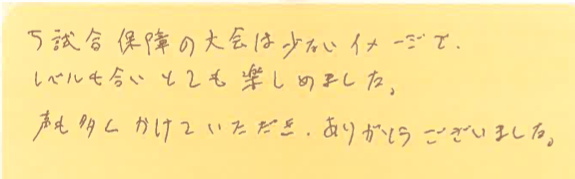 5試合保障の大会は少ないイメージで、
レベルも合いとても楽しめました。
声も多くかけていただき、ありがとうございました。